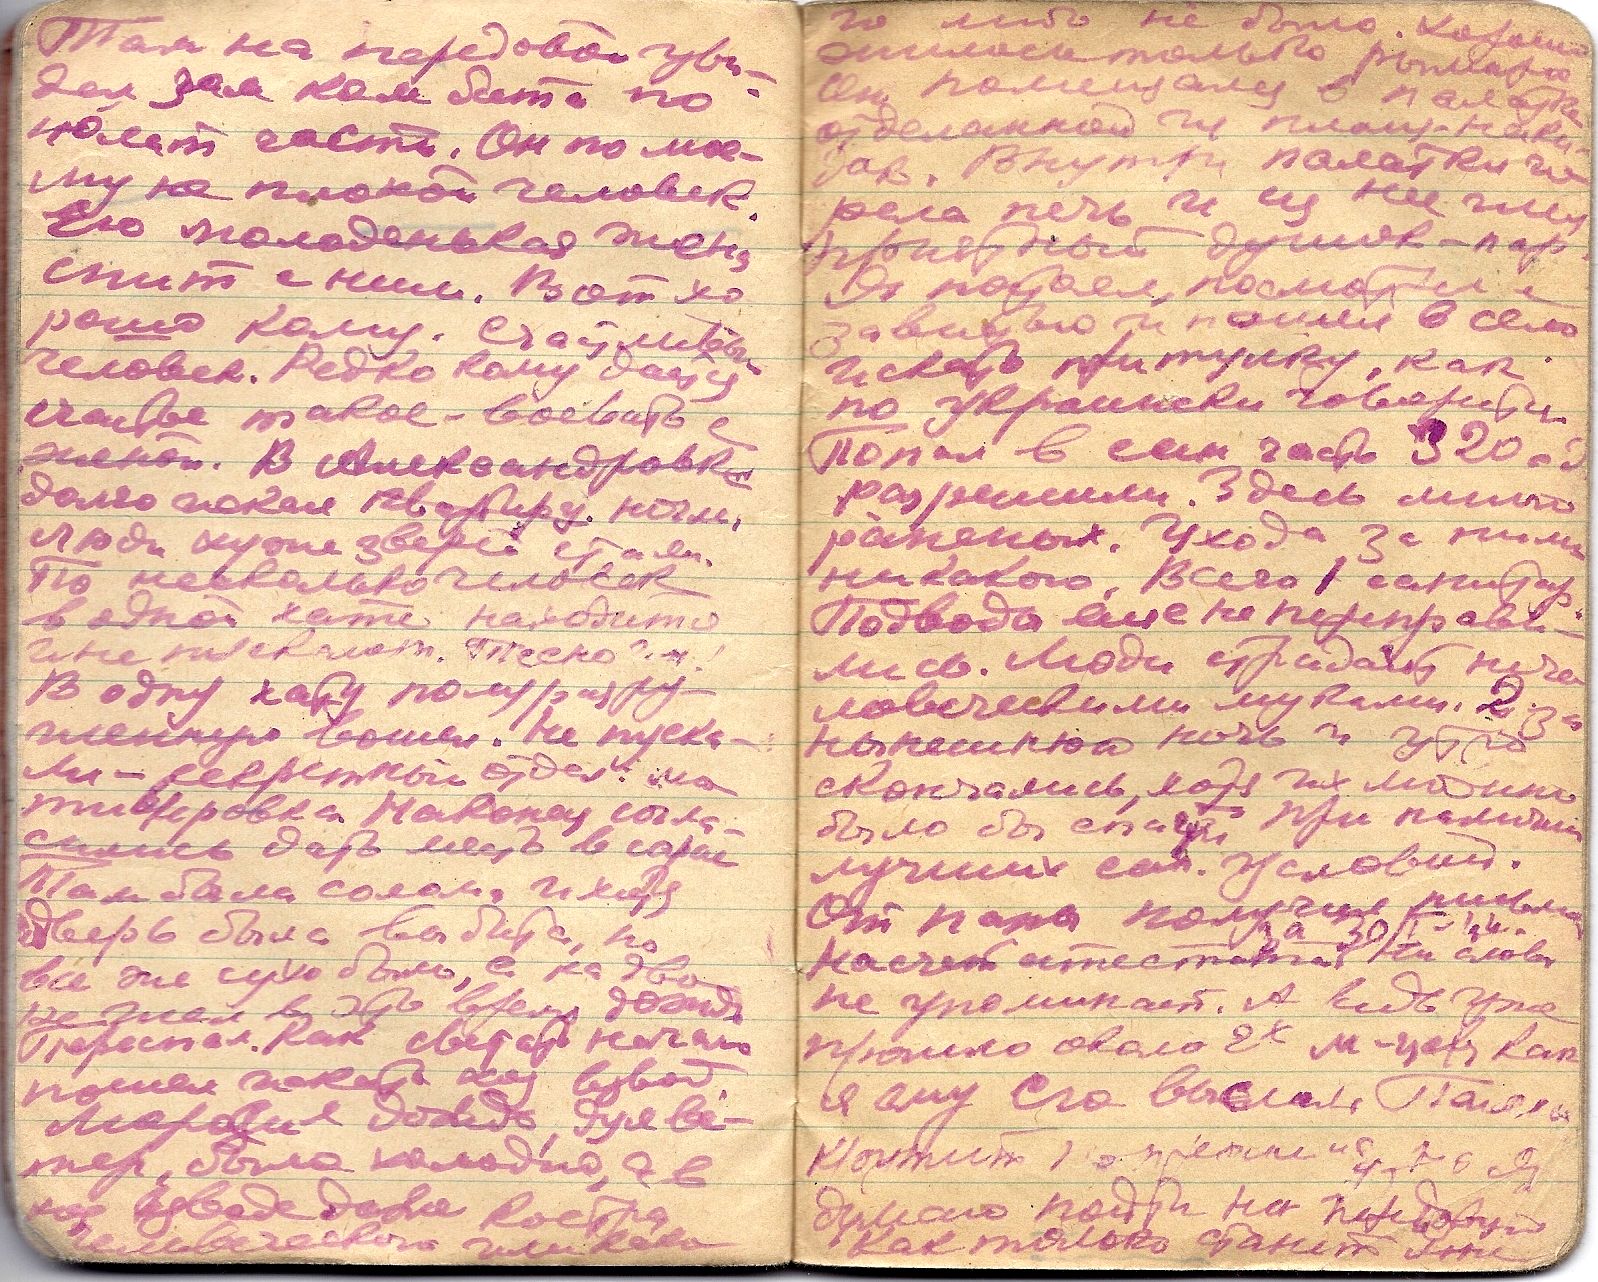 Там на передовой уви-
дел зам ком бата по
полит части. Он по мое-
му не плохой человек.
Его молоденькая жена
спит с ним. Вот хо
рошо кому. Счастливый
человек. Редко кому дано
счастье такое - воевать с
женой. В Александровке
долго искал квартиру ночи.
Люди хуже зверей стали.
По несколько человек
в одной хате находится
и не пускают. Тесно им!
В одну хату полуразру-
шенную вошел. Не пуска-
ли - секретный отдел.
Наконец согла-
сились дать место в сарае
Там была солома и хотя
дверь была выбита, но
все же сухо было, а на дво
ре шел в это время дождь
Переспал. Как светать начало
пошел искать хоз взвод.
Моросил дождь, дул ве-
тер, было холодно, а в
хоз взводе даже костра
человеческого или како
го либо не было. Хорошо
жилось только
Он помещался в палатке
сделанной из плащ-наки-
док. Внутри палатки го
рела печь и из нее шел
приятный душок - пар.
Я постоял, посмотрел с
завистью и пошел в село
искать притулку, как
по украински говорится.
Попал в сан часть 320 сд
разрешили. Здесь много
раненых. Ухода за ними
никакого. Всего 1 санитар.
Подводы еще не переправи-
лись. Люди страдают нече
ловеческими муками. 2 за
нынешнюю ночь и утро
скончались, хотя их можно
было бы спасти при наличии
лучших сан. условий.
От папы получил письмо
за 30/I-44.
Насчет аттестата ни слова
не упоминает. А ведь уже
прошло около 2х м-цев как
я ему его выслал.
но я
думаю пойти на передовую
как только станет